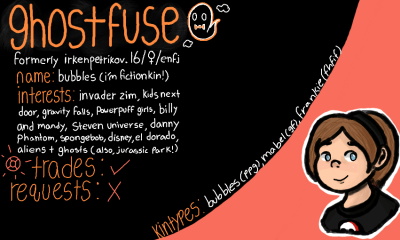 ghostfuse
formerly irkenpetrikov. 16/♀/enfj
name: bubbles (i'm fictionkin!)
interests: invader zim, kids next
door, gravity falls, powerpuff girls, billy
and mandy, steven universe, danny
phantom, spongebob, disney, el dorado,
aliens + ghosts (also, jurassic park!)
trades: ✓
requests: X
kintypes: bubbles (ppg) mabel (gf) frankie (fhfif)